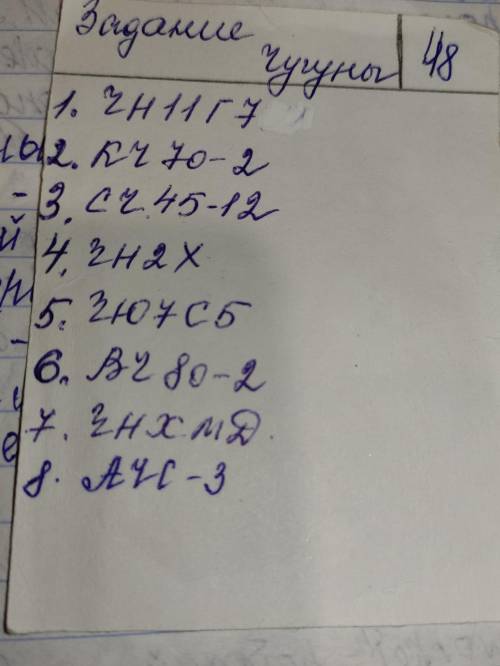 Задание
Чугуны 48
1. ЧН11Г7
2. КЧ 70-2
3. СЧ 45-12
4. ЧН2Х
5. ЧЮ7С5
6. ВЧ 80-2
7. ЧНХМД.
8. АЧС-3